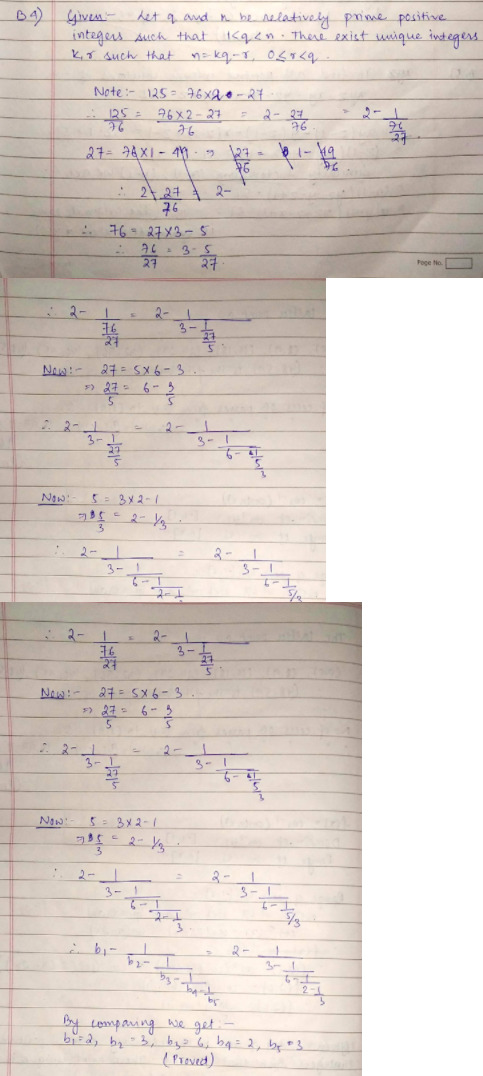 B4) Given:- Let q and n be relatively prime positive
integers such that 1<q<n. There exist unique integers
k, r such that n=kq-r, 0≤r<q.
Note:- 125 = 76×2 - 27
∴ 125/76 = (76×2-27)/76 = 2- 27/76 = 2- 1/(76/27)
27 = 76×1 - 49 ⇒ 27/76 = 1- 49/76
∴ 2- 27/76 = 2-
∴ 76 = 27×3 - 5
∴ 76/27 = 3- 5/27
Page No.
∴ 2- 1/(76/27) = 2- 1/(3- 1/(27/5))
Now:- 27 = 5×6 - 3
⇒ 27/5 = 6- 3/5
∴ 2- 1/(3- 1/(27/5)) = 2- 1/(3- 1/(6- 1/(5/3)))
Now:- 5 = 3×2-1
⇒ 5/3 = 2- 1/3
∴ 2- 1/(3- 1/(6- 1/(2- 1/ = 2- 1/(3- 1/(6- 1/(5/3)))
∴ 2- 1/(76/27) = 2- 1/(3- 1/(27/5))
Now:- 27 = 5×6 - 3
⇒ 27/5 = 6- 3/5
∴ 2- 1/(3- 1/(27/5)) = 2- 1/(3- 1/(6- 1/(5/3)))
Now:- 5 = 3×2-1
⇒ 5/3 = 2- 1/3
∴ 2- 1/(3- 1/(6- 1/(2- 1/3))) = 2- 1/(3- 1/(6- 1/(5/3)))
∴ b1- 1/(b2- 1/(b3- 1/(b4- 1/b5))) = 2- 1/(3- 1/(6- 1/(2- 1/3)))
By comparing we get:-
b1=2, b2=3, b3=6, b4=2, b5=3
(Proved)